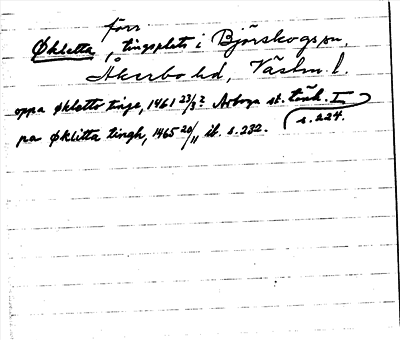 förr
Økletta, tingsplats i Björskogs sn,
Åkerbo hd, Västm. l.
oppa økletto tinge, 1461 23/3? Arboga st. tänk. I
s. 224.
pa øklitta tingh, 1465 20/11 ib. s. 232.